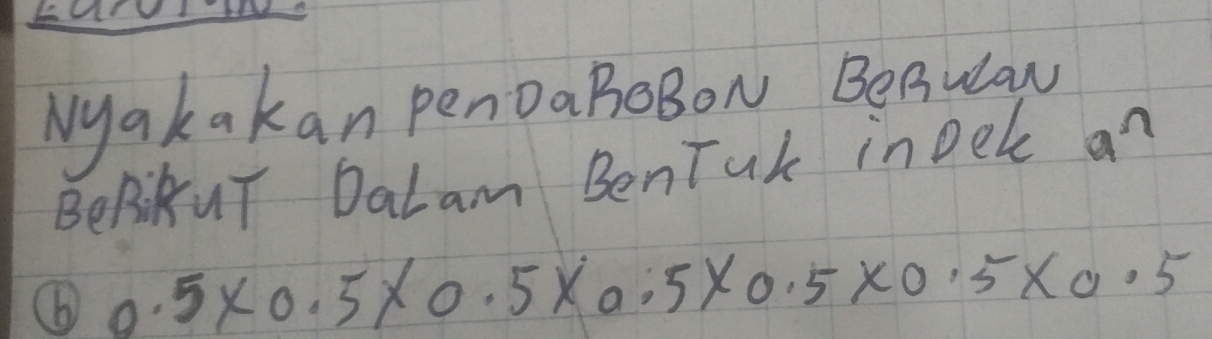 Nyakakan penDaRaBaN BeRulaN
BeRikuT DaLam BenTuk inDek aⁿ
ⓑ 0.5 × 0.5 × 0.5 × 0.5 × 0.5 × 0.5 × 0.5